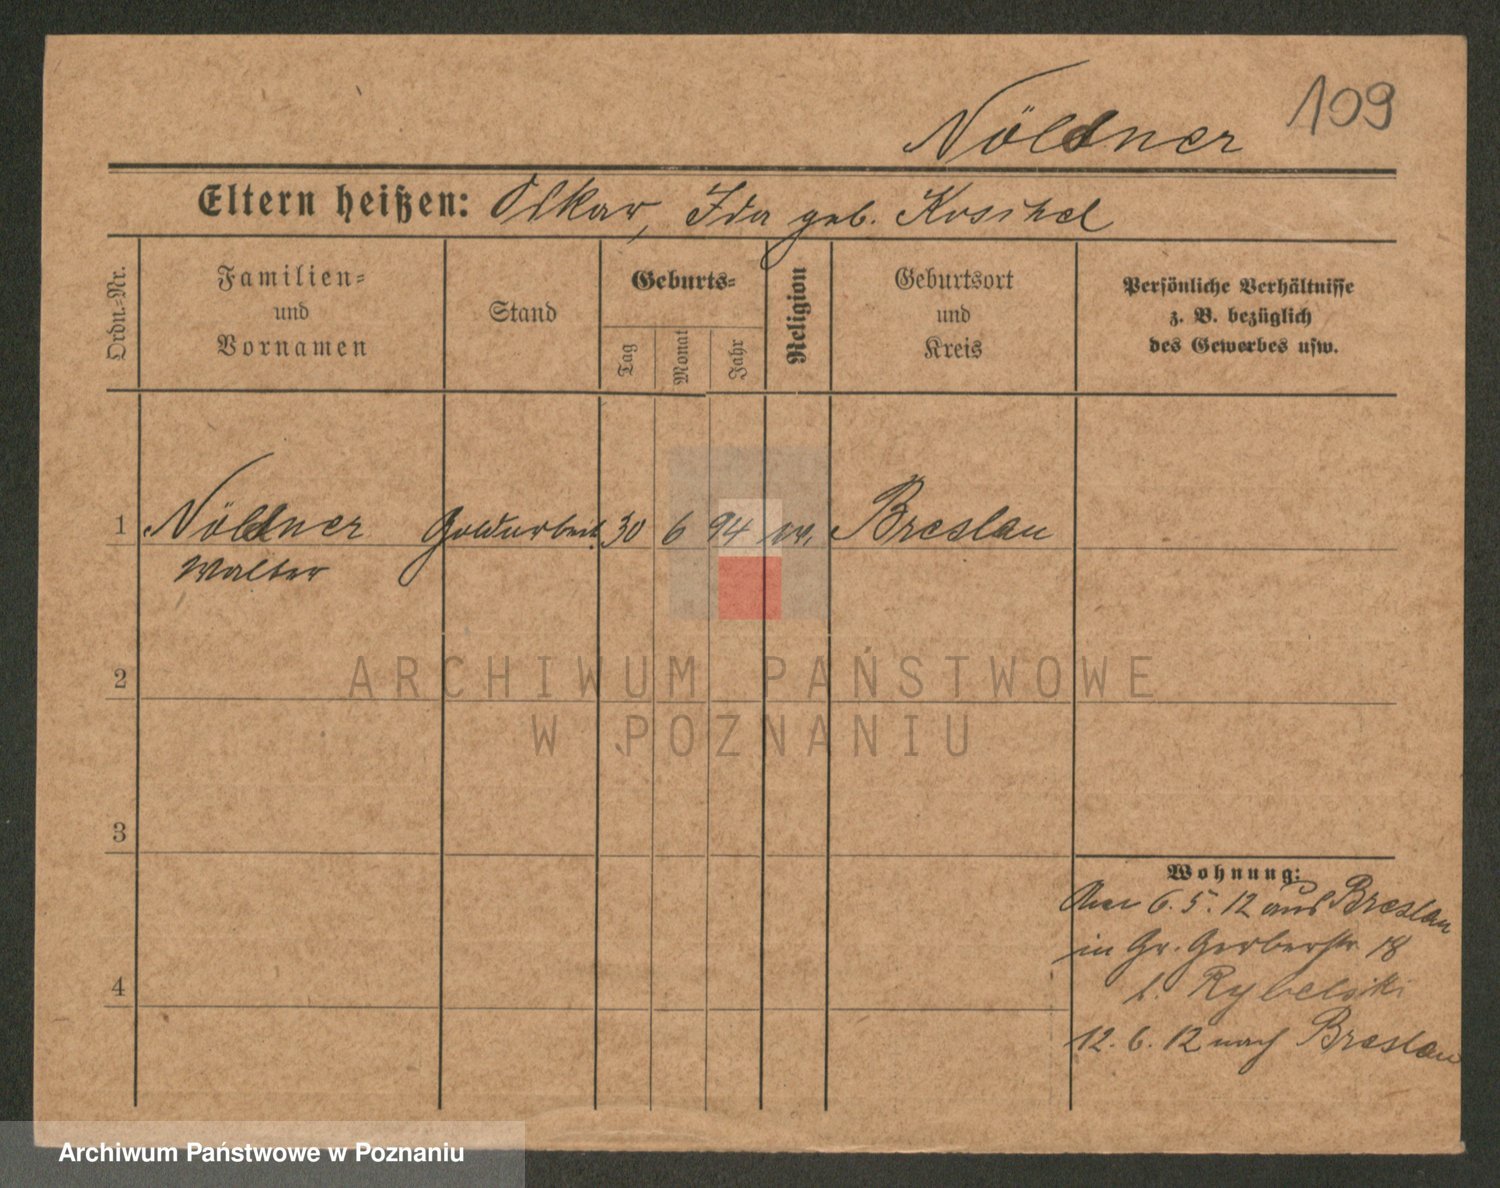 109
Nöldner
Eltern heißen: Oskar, Ida geb.
Ordn.-Nr.
Familien- und Vornamen
Stand
Geburts-
Tag
Monat
Jahr
Religion
Geburtsort und Kreis
Persönliche Verhältnisse
z. B. bezüglich
des Gewerbes usw.
1 Nöldner Goldarbeit. 30 6 94 ev. Breslau
Walter
2
3
4
Wohnung:
6. 5. 12 aus Breslau
in Gr. Gerberstr. 18
b. Rybelski
12. 6. 12 nach Breslau
ARCHIWUM PAŃSTWOWE
W POZNANIU
Archiwum Państwowe w Poznaniu